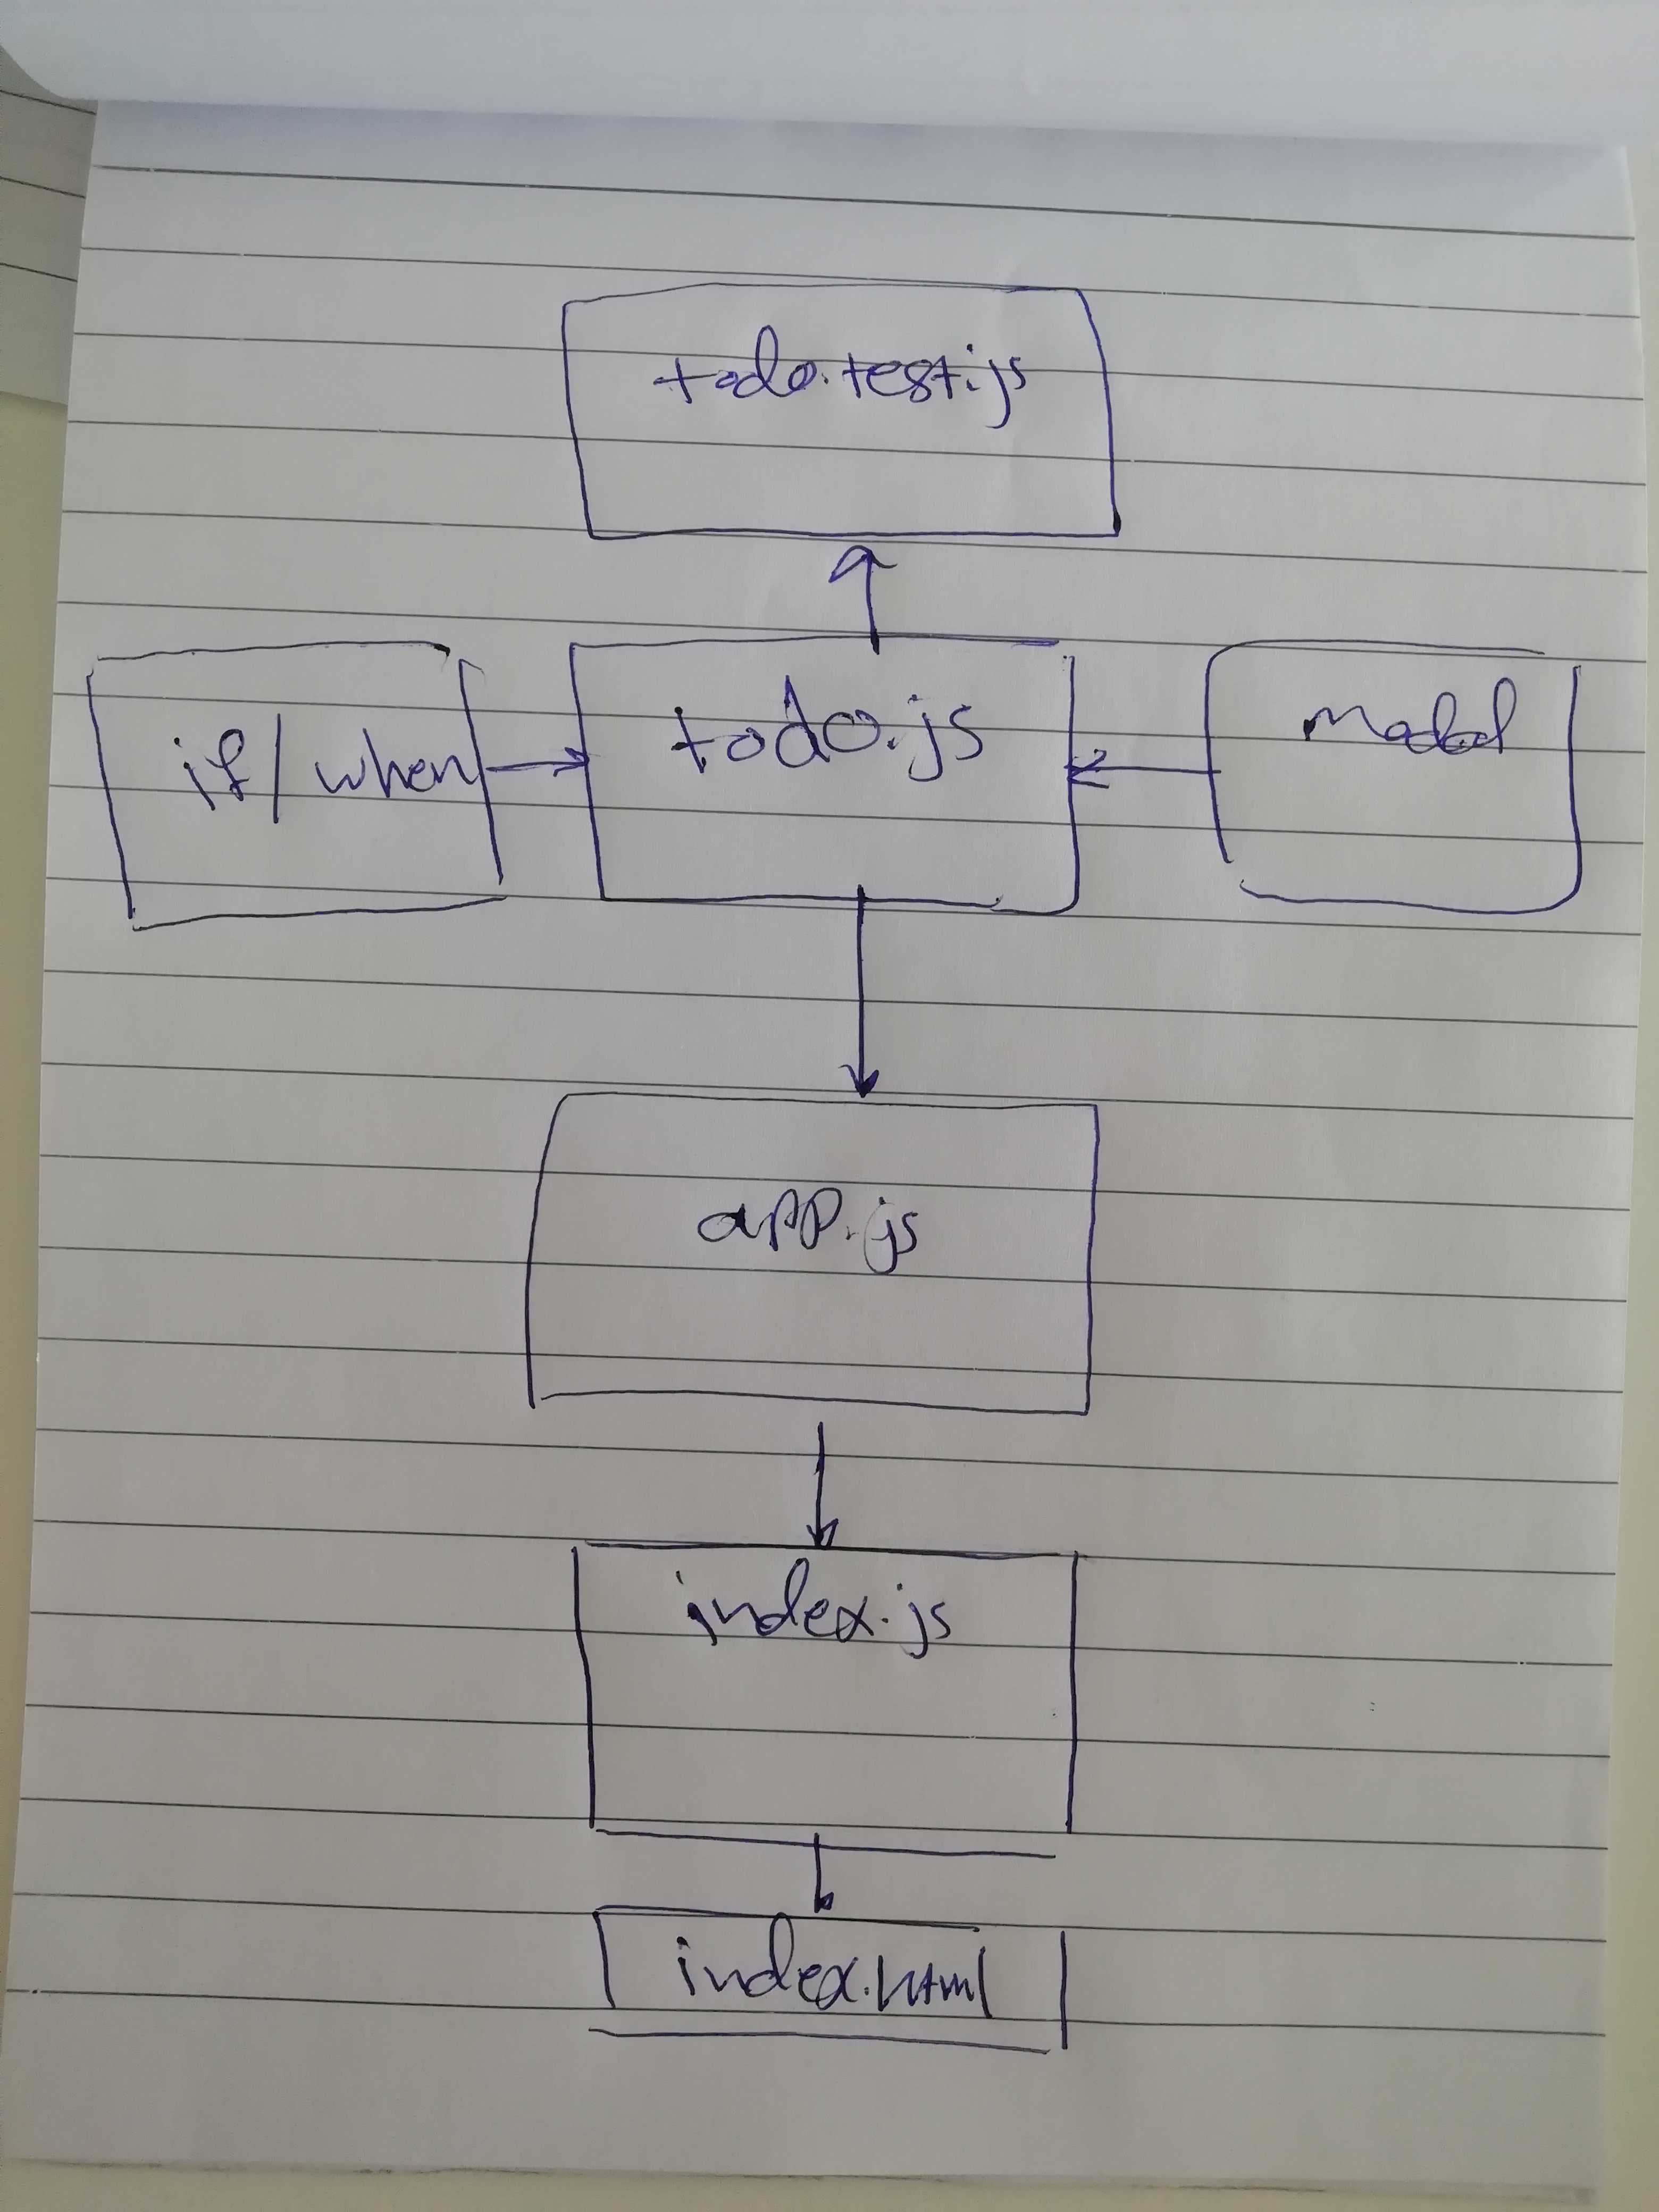 todo.test.js
if/when
todo.js
app.js
index.js
index.html